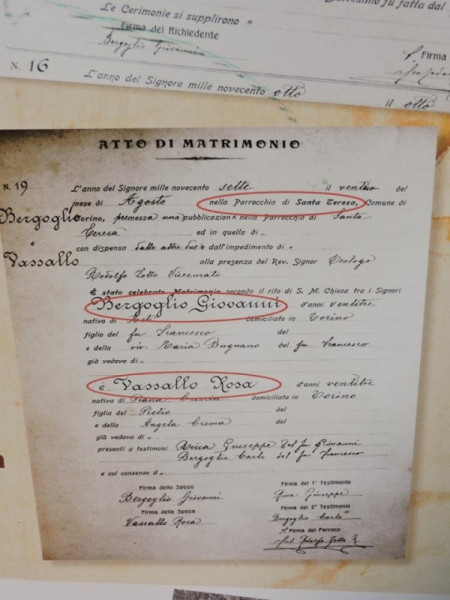 Le Cerimonie si supplirono
Firma del Richiedente
Bergoglio Giovanni
Firma
N. 16
L'anno del Signore mille novecento otto il otto
ATTO DI MATRIMONIO
N. 19
Bergoglio
e
Vassallo
L'anno del Signore mille novecento sette il del
mese di Agosto nella Parrocchia di Santa Teresa, Comune di
Torino, premessa una pubblicazione nella Parrocchia di Santa
Teresa ed in quella di -
con dispensa dalle altre due dall'impedimento di -
alla presenza del Rev. Signor Teologo
Rodolfo
È stato celebrato Matrimonio secondo il rito di S. M. Chiesa tra i Signori
Bergoglio Giovanni d'anni ventitre
nativo di Asti domiciliato in Torino
figlio del fu Francesco del
e della viv. Maria Bugnano del fu Francesco
già vedovo di -
e Vassallo Rosa d'anni ventitre
nativa di Piana Crixia domiciliata in Torino
figlia del Pietro del
e della Angela Crema del
già vedova di -
presenti a testimoni Giuseppe del fu Giovanni
Bergoglio Carlo del fu Francesco
e col consenso di -
Firma dello Sposo
Bergoglio Giovanni
Firma della Sposa
Vassallo Rosa
Firma del 1° Testimonio
Giuseppe
Firma del 2° Testimonio
Bergoglio Carlo
Firma del Parroco